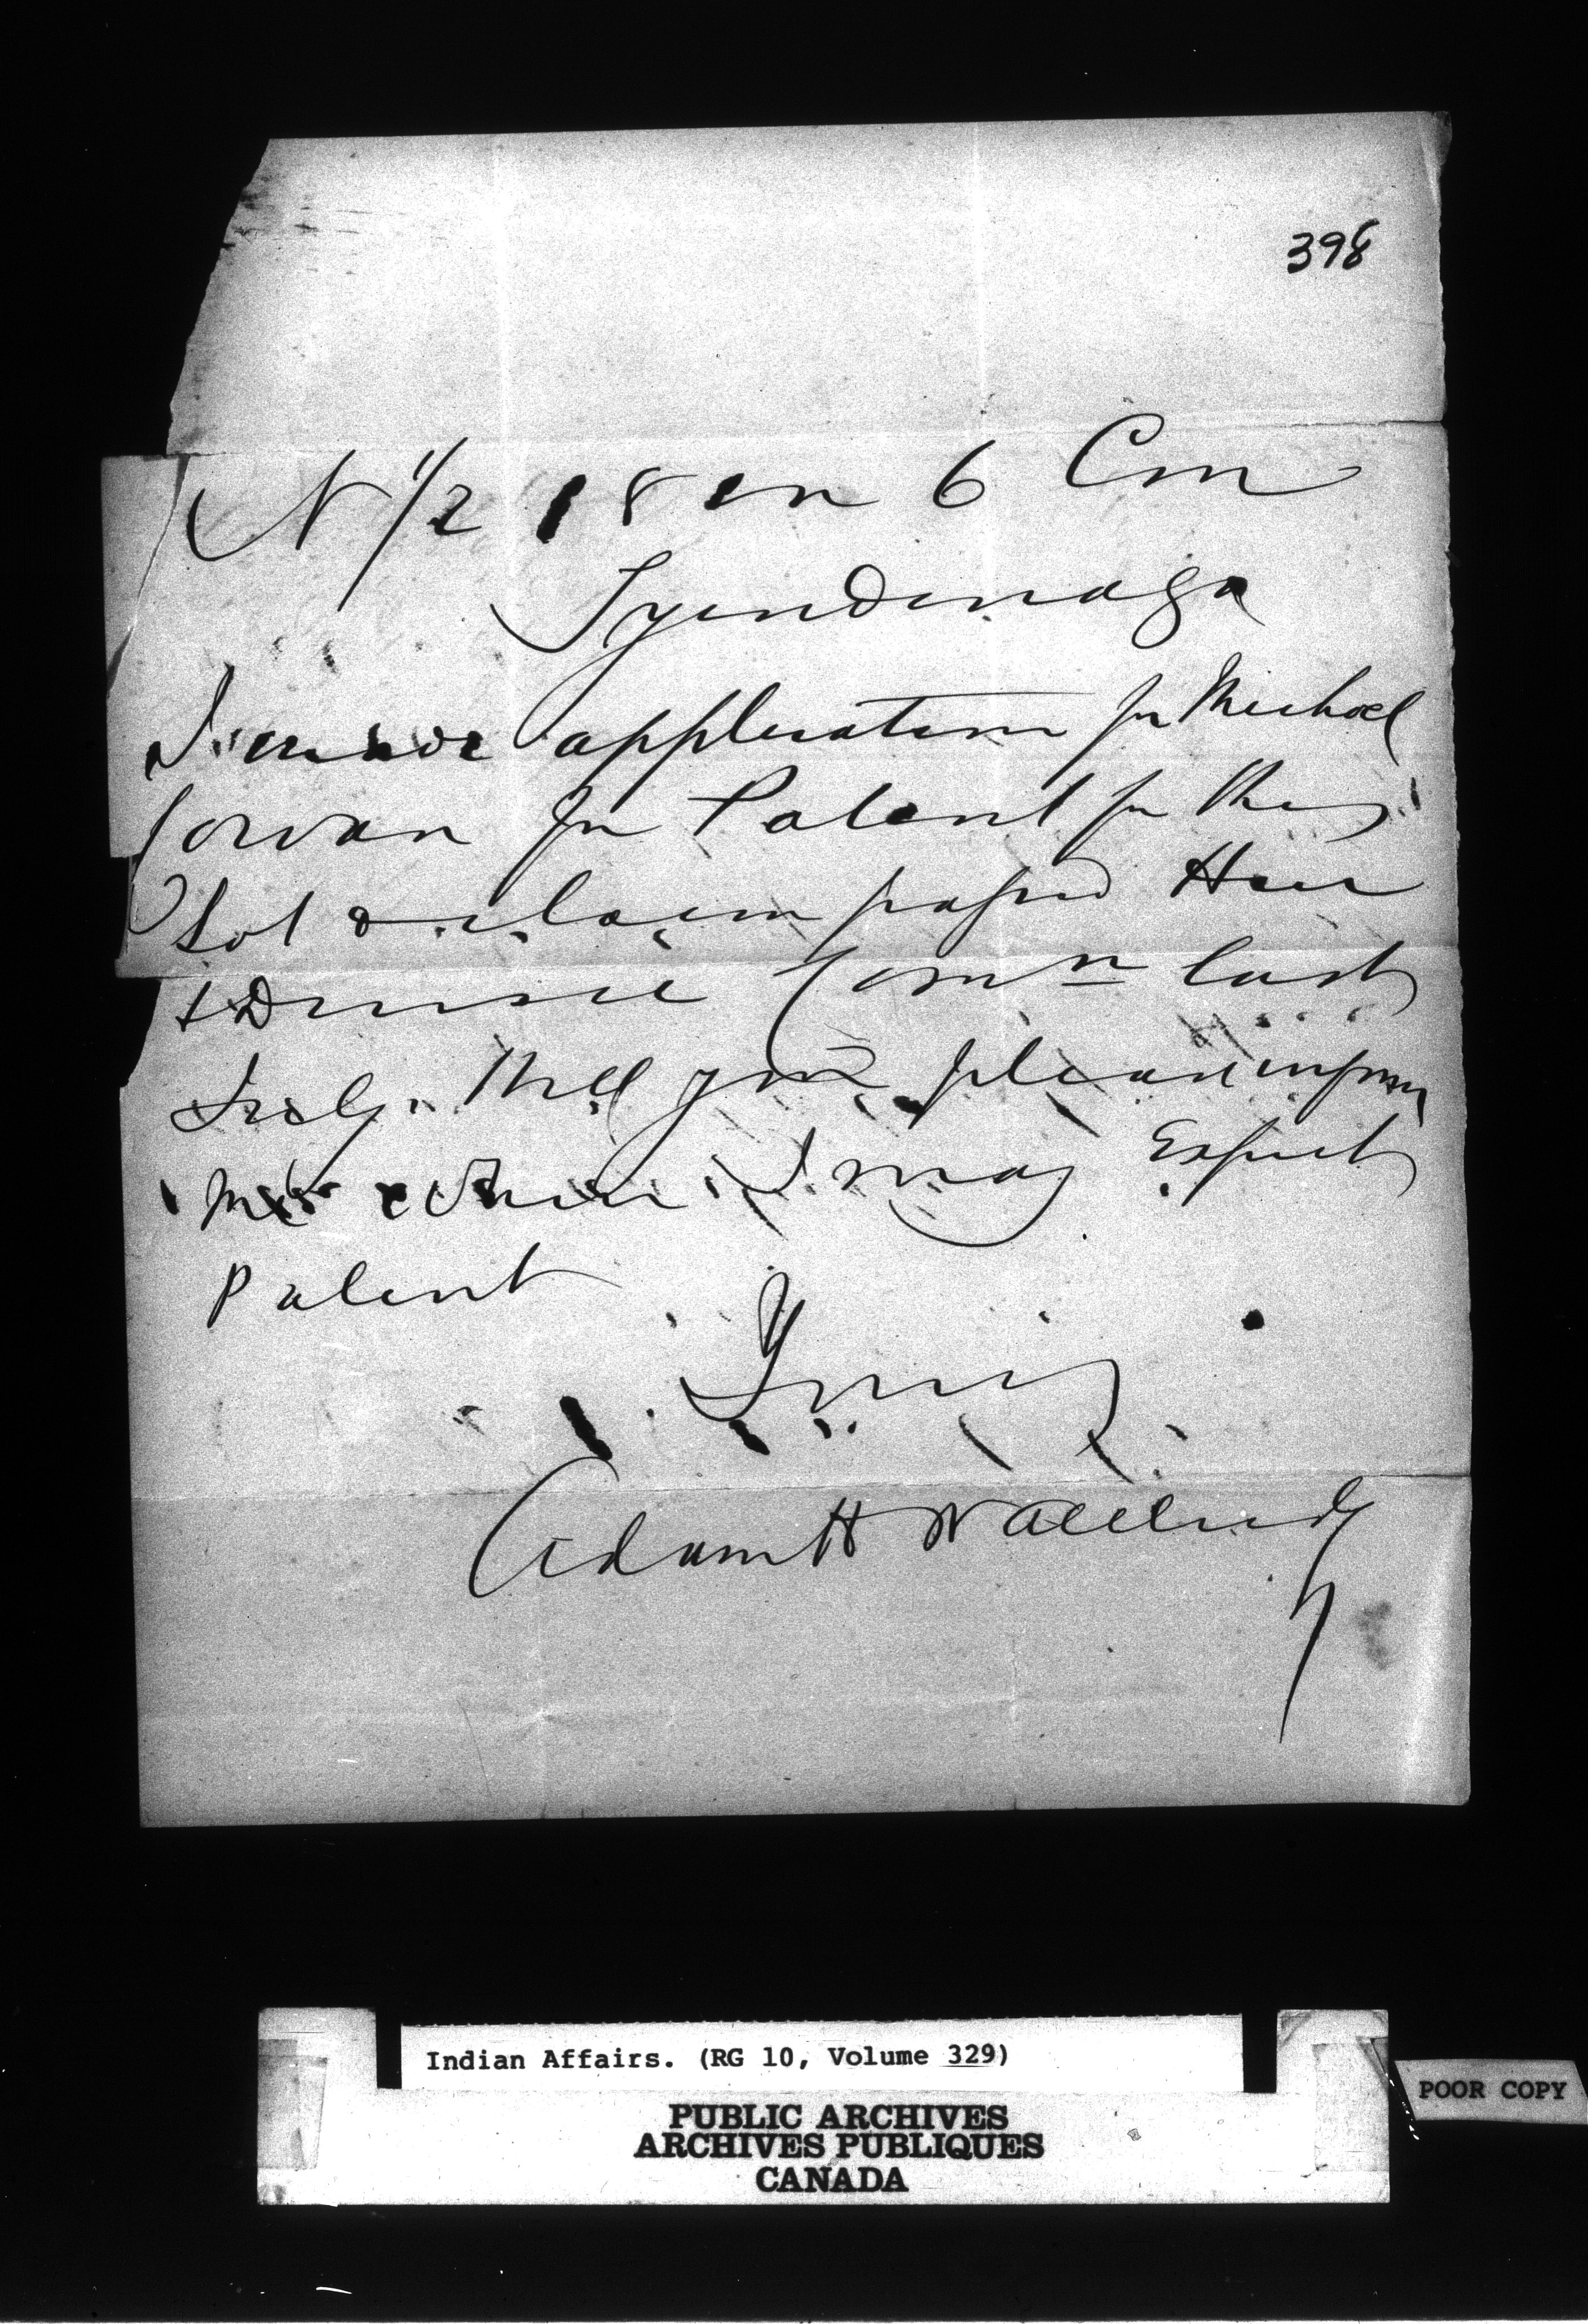 398
N 1/2 18 in 6 Con
Tyendenaga
I made application for Michael
for Patent for this
Lot & claim passed Heir
& Devisee Com<u>n</u> last
July. Will you please inform
me when I may Expect
Patent
Yours
Adam H
Indian Affairs. (RG 10, Volume 329)
POOR COPY
PUBLIC ARCHIVES
ARCHIVES PUBLIQUES
CANADA